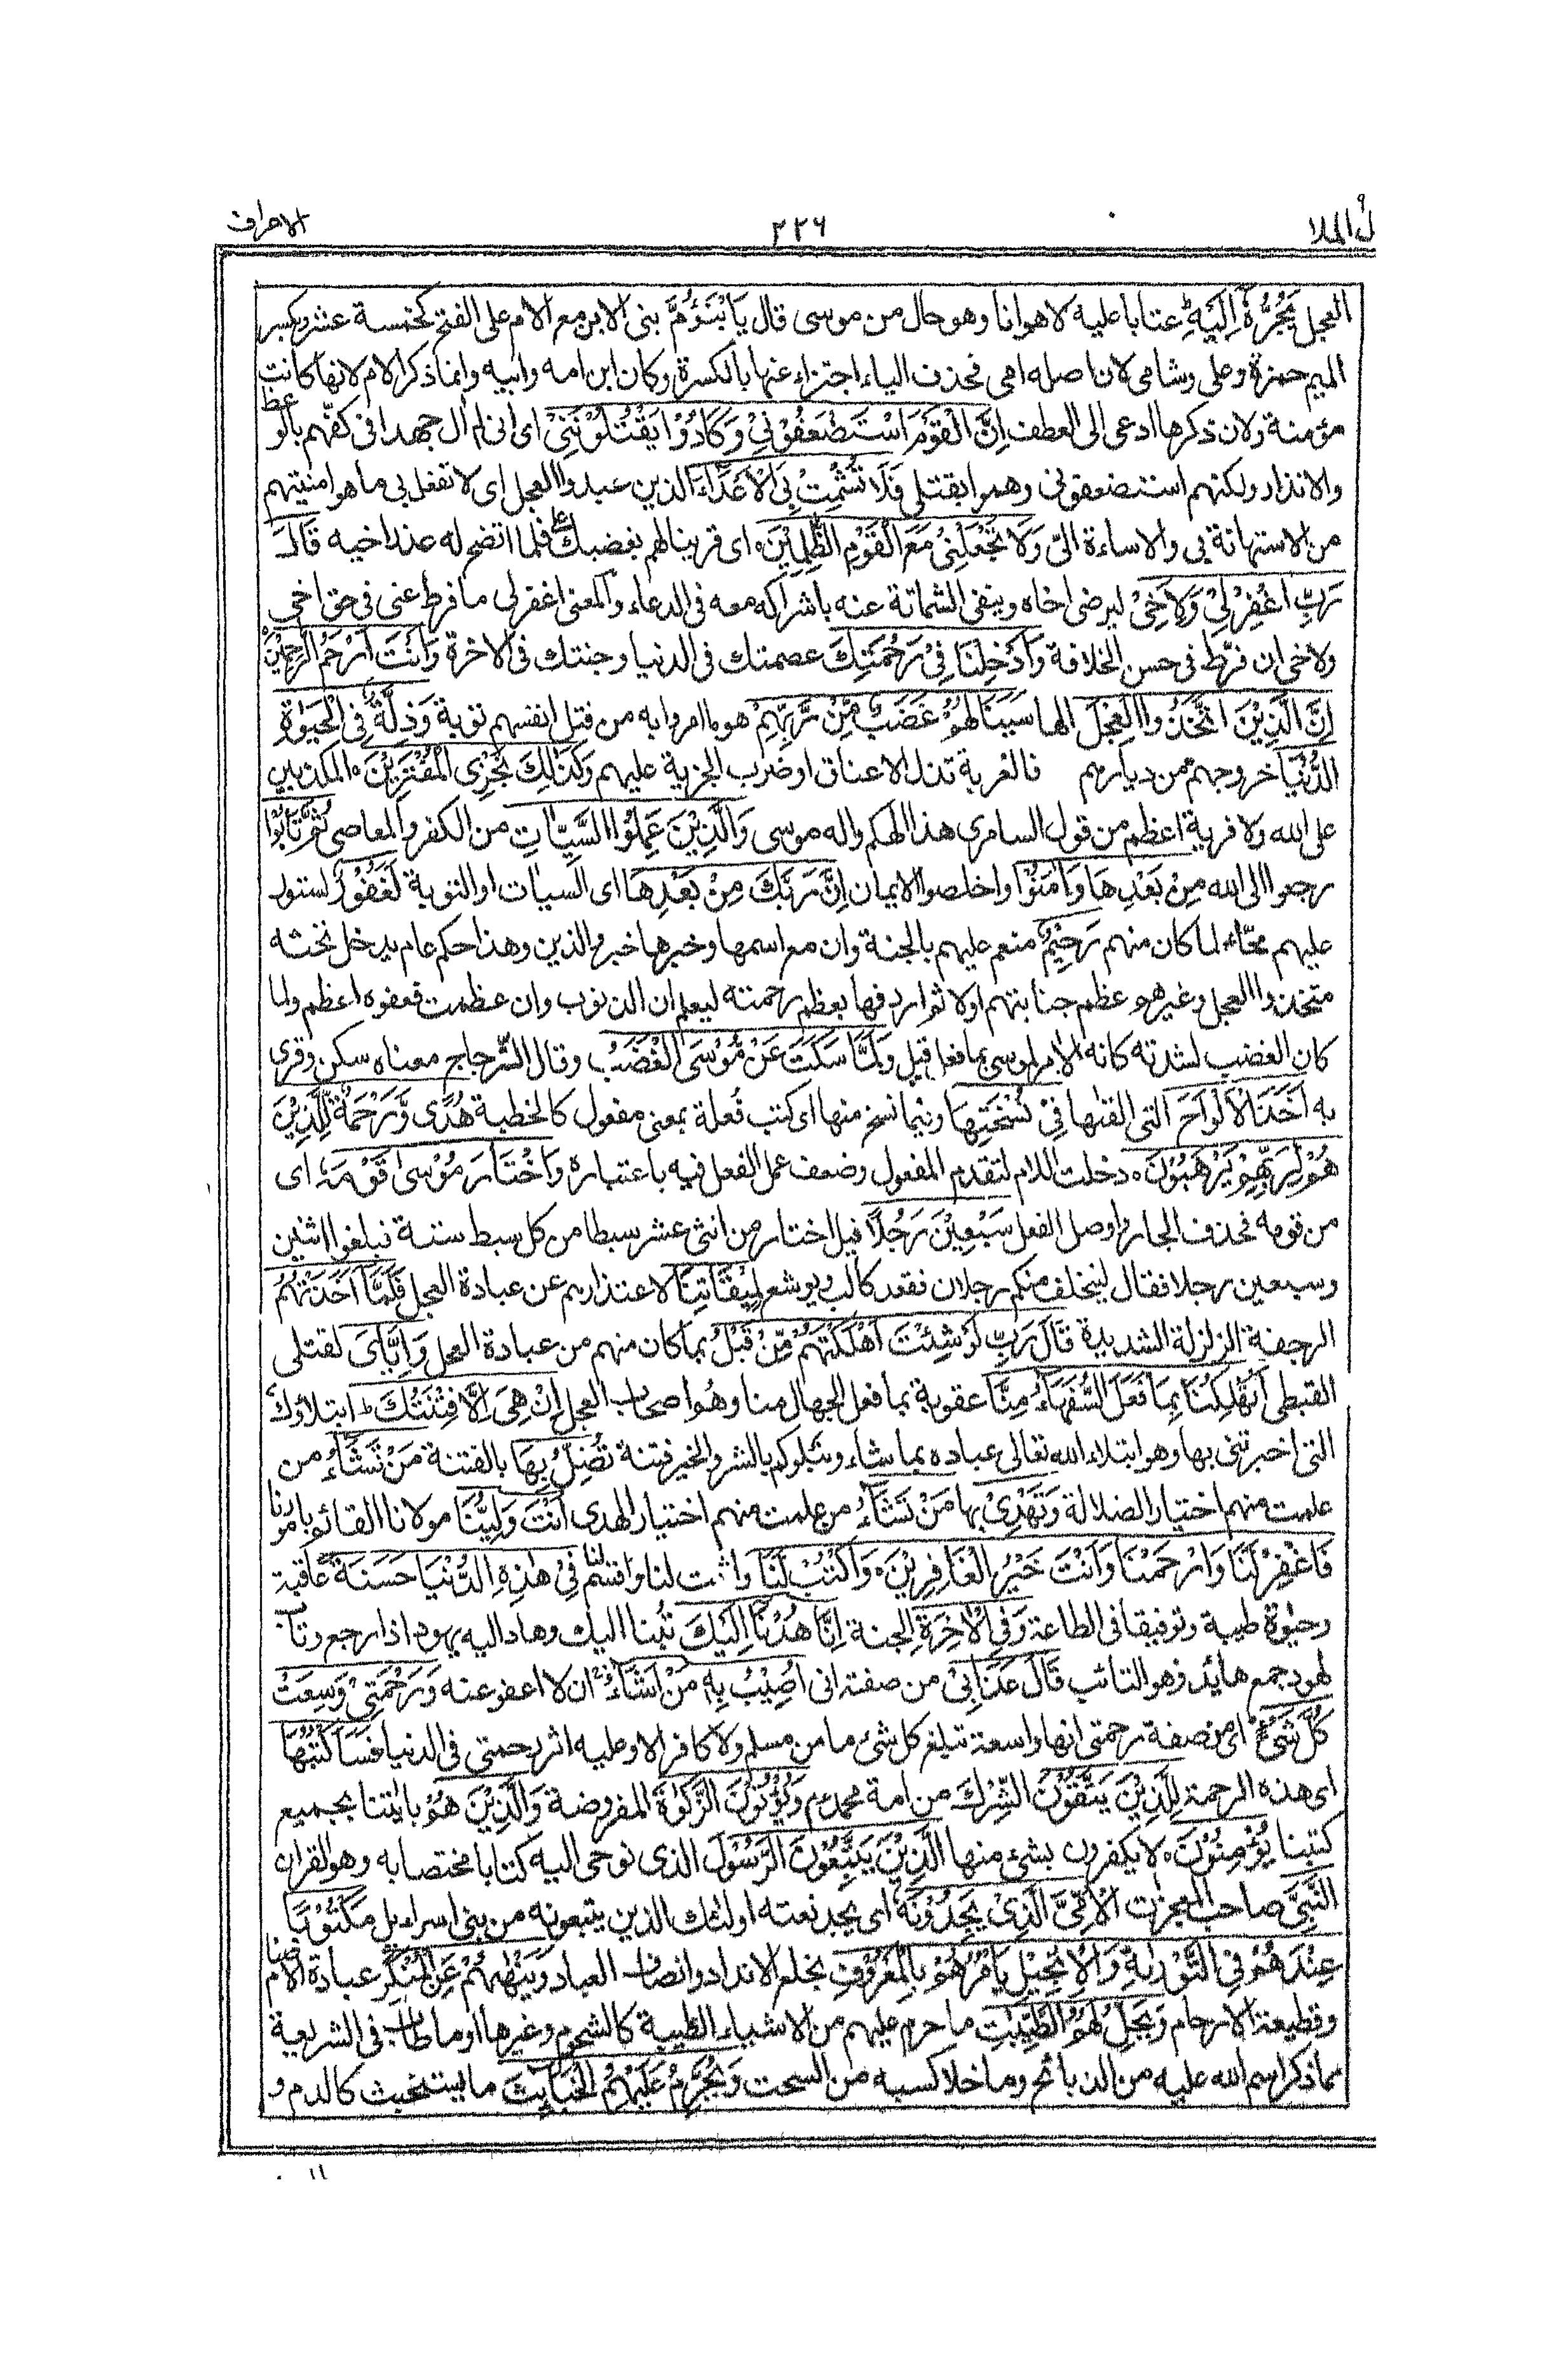 قال الملا ٩
٢٢٦
الاعراف
العجل يَجُرُّهٗٓ اِلَيْهِ عتابا عليه لا هوانا وهو حال من موسى قال يَابْنَؤُمَّ بنى الابن مع الام على الفتح كخمسة عشر وبكسر
الميم حمزة وعلى وشامى لان اصله امى فحذف الياء اجتزاء عنها بالكسرة وكان ابن امه وابيه وانما ذكر الام لانها كانت
مؤمنة ولان ذكرها ادعى الى العطف اِنَّ الْقَوْمَ اسْتَضْعَفُوْنِيْ وَكَادُوْا يَقْتُلُوْنَنِيْ اى انى لم آل جهدا فى كفّهم بالوعظ
والانذار ولكنهم استضعفونى وهموا بقتلى فَلَا تُشْمِتْ بِيَ الْاَعْدَآءَ الذين عبدوا العجل اى لا تفعل بى ما هو امنيتهم
من الاستهانة بى والاساءة الىّ وَلَا تَجْعَلْنِيْ مَعَ الْقَوْمِ الظّٰلِمِيْنَ اى قرينا لهم بغضبك علىّ فلما اتضح له عذر اخيه قَالَ
رَبِّ اغْفِرْ لِيْ وَلِاَخِيْ ليرضى اخاه وينفى الشماتة عنه باشراكه معه فى الدعاء والمعنى اغفر لى ما فرط عنى فى حق اخى
ولاخى ان فرّط فى حسن الخلافة وَاَدْخِلْنَا فِيْ رَحْمَتِكَ عصمتك فى الدنيا وجنتك فى الاخرة وَاَنْتَ اَرْحَمُ الرّٰحِمِيْنَ
اِنَّ الَّذِيْنَ اتَّخَذُوا الْعِجْلَ الها سَيَنَالُهُمْ غَضَبٌ مِّنْ رَّبِّهِمْ هو ما امروا به من قتل انفسهم توبة وَذِلَّةٌ فِى الْحَيٰوةِ
الدُّنْيَا خروجهم من ديارهم فالغربة تذل الاعناق او ضرب الجزية عليهم وَكَذٰلِكَ نَجْزِى الْمُفْتَرِيْنَ المكذبين
على الله ولا فرية اعظم من قول السامرى هذا الهكم واله موسى وَالَّذِيْنَ عَمِلُوا السَّيِّاٰتِ من الكفر والمعاصى ثُمَّ تَابُوْا
رجعوا الى الله مِنْۢ بَعْدِهَا وَاٰمَنُوْٓا واخلصوا الايمان اِنَّ رَبَّكَ مِنْۢ بَعْدِهَا اى السيات او التوبة لَغَفُوْرٌ لستور
عليهم محّاء لما كان منهم رَحِيْمٌ منعم عليهم بالجنة وان مع اسمها وخبرها خبر والذين وهذا حكم عام يدخل تحته
متخذوا العجل وغيرهم عظم جنايتهم اولا ثم اردفها بعظم رحمته ليعلم ان الذنوب وان عظمت فعفوه اعظم ولما
كان الغضب لشدته كانه الامر لموسى بما فعل قيل وَلَمَّا سَكَتَ عَنْ مُّوْسَى الْغَضَبُ وقال الزجاج معناه سكن وقرى
به اَخَذَ الْاَلْوَاحَ التى القٰها فِيْ نُسْخَتِهَا وفيما نسخ منها اى كتب فُعلة بمعنى مفعول كالخطبة هُدًى وَّرَحْمَةٌ لِّلَّذِيْنَ
هُمْ لِرَبِّهِمْ يَرْهَبُوْنَ دخلت اللام لتقدم المفعول وضعف عمل الفعل فيه باعتباره وَاخْتَارَ مُوْسٰى قَوْمَهٗ اى
من قومه فحذف الجار واوصل الفعل سَبْعِيْنَ رَجُلًا قيل اختار من اثنى عشر سبطا من كل سبط ستة فبلغوا اثنين
وسبعين رجلا فقال ليتخلف منكم رجلان فقعد كالب ويوشع لِّمِيْقَاتِنَا لاعتذارهم عن عبادة العجل فَلَمَّآ اَخَذَتْهُمُ
الرجفة الزلزلة الشديدة قَالَ رَبِّ لَوْ شِئْتَ اَهْلَكْتَهُمْ مِّنْ قَبْلُ بما كان منهم من عبادة العجل وَاِيَّايَ لقتلى
القبطى اَتُهْلِكُنَا بِمَا فَعَلَ السُّفَهَآءُ مِنَّا عقوبة بما فعل الجهال منا وهم اصحاب العجل اِنْ هِيَ اِلَّا فِتْنَتُكَ ابتلاؤك
التى اخبرتنى بها وهو ابتلاء الله تعالى عباده بما شاء ونبلوكم بالشر والخير فتنة تُضِلُّ بِهَا بالفتنة مَنْ تَشَآءُ من
علمت منهم اختيار الضلالة وَتَهْدِيْ بها مَنْ تَشَآءُ من علمت منهم اختيار الهدى اَنْتَ وَلِيُّنَا مولانا القائم بامورنا
فَاغْفِرْ لَنَا وَارْحَمْنَا وَاَنْتَ خَيْرُ الْغَافِرِيْنَ وَاكْتُبْ لَنَا واثبت لنا واقسم لنا فِيْ هٰذِهِ الدُّنْيَا حَسَنَةً عاقبة
وحيٰوة طيبة وتوفيقا فى الطاعة وَفِى الْاٰخِرَةِ الجنة اِنَّا هُدْنَآ اِلَيْكَ تبنا اليك وهاد اليه يهود اذا رجع وتاب
لهود جمع هائد وهو التائب قَالَ عَذَابِيْٓ من صفته انى اُصِيْبُ بِهٖ مَنْ اَشَآءُ ان لا اعفو عنه وَرَحْمَتِيْ وَسِعَتْ
كُلَّ شَيْءٍ اى من صفة رحمتى انها واسعة تبلغ كل شئ ما من مسلم ولا كافر الا وعليه اثر رحمتى فى الدنيا فَسَاَكْتُبُهَا
اى هذه الرحمة لِلَّذِيْنَ يَتَّقُوْنَ الشِّرْكَ من امة محمد م وَيُؤْتُوْنَ الزَّكٰوةَ المفروضة وَالَّذِيْنَ هُمْ باٰيٰتنا بجميع
كتبنا يُؤْمِنُوْنَ لا يكفرون بشئ منها اَلَّذِيْنَ يَتَّبِعُوْنَ الرَّسُوْلَ الذى نوحى اليه كتابا مختصا به وهو القران
النَّبِيَّ صاحب المعجزات الْاُمِّيَّ الَّذِيْ يَجِدُوْنَهٗ اى يجد نعته اولئك الذين يتبعونه من بنى اسراءيل مَكْتُوْبًا
عِنْدَهُمْ فِى التَّوْرٰىةِ وَالْاِنْجِيْلِ يَاْمُرُهُمْ بِالْمَعْرُوْفِ بخلع الانداد وانصاف العباد وَيَنْهٰىهُمْ عَنِ الْمُنْكَرِ عبادة الاصنام
وقطيعة الارحام وَيُحِلُّ لَهُمُ الطَّيِّبٰتِ ما حرم عليهم من الاشياء الطيبة كالشحوم وغيرها او ما طاب فى الشريعة
مما ذكر اسم الله عليه من الذبائح وما خلا كسبه من السحت وَيُحَرِّمُ عَلَيْهِمُ الْخَبٰٓئِثَ ما يستخبث كالدم و